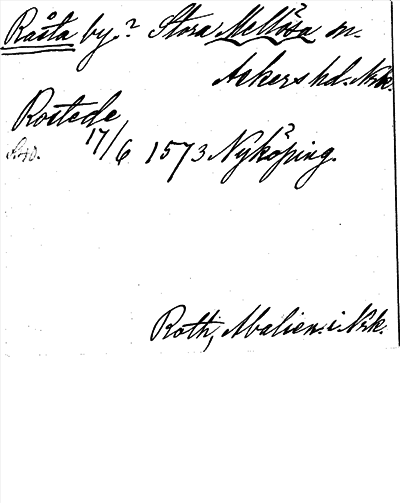 Råsta by? Stora Mellösa sn.
Askers hd. Nrk.
Rostede
17/6 1573 Nyköping.
Roth, Malien. i Nrk.